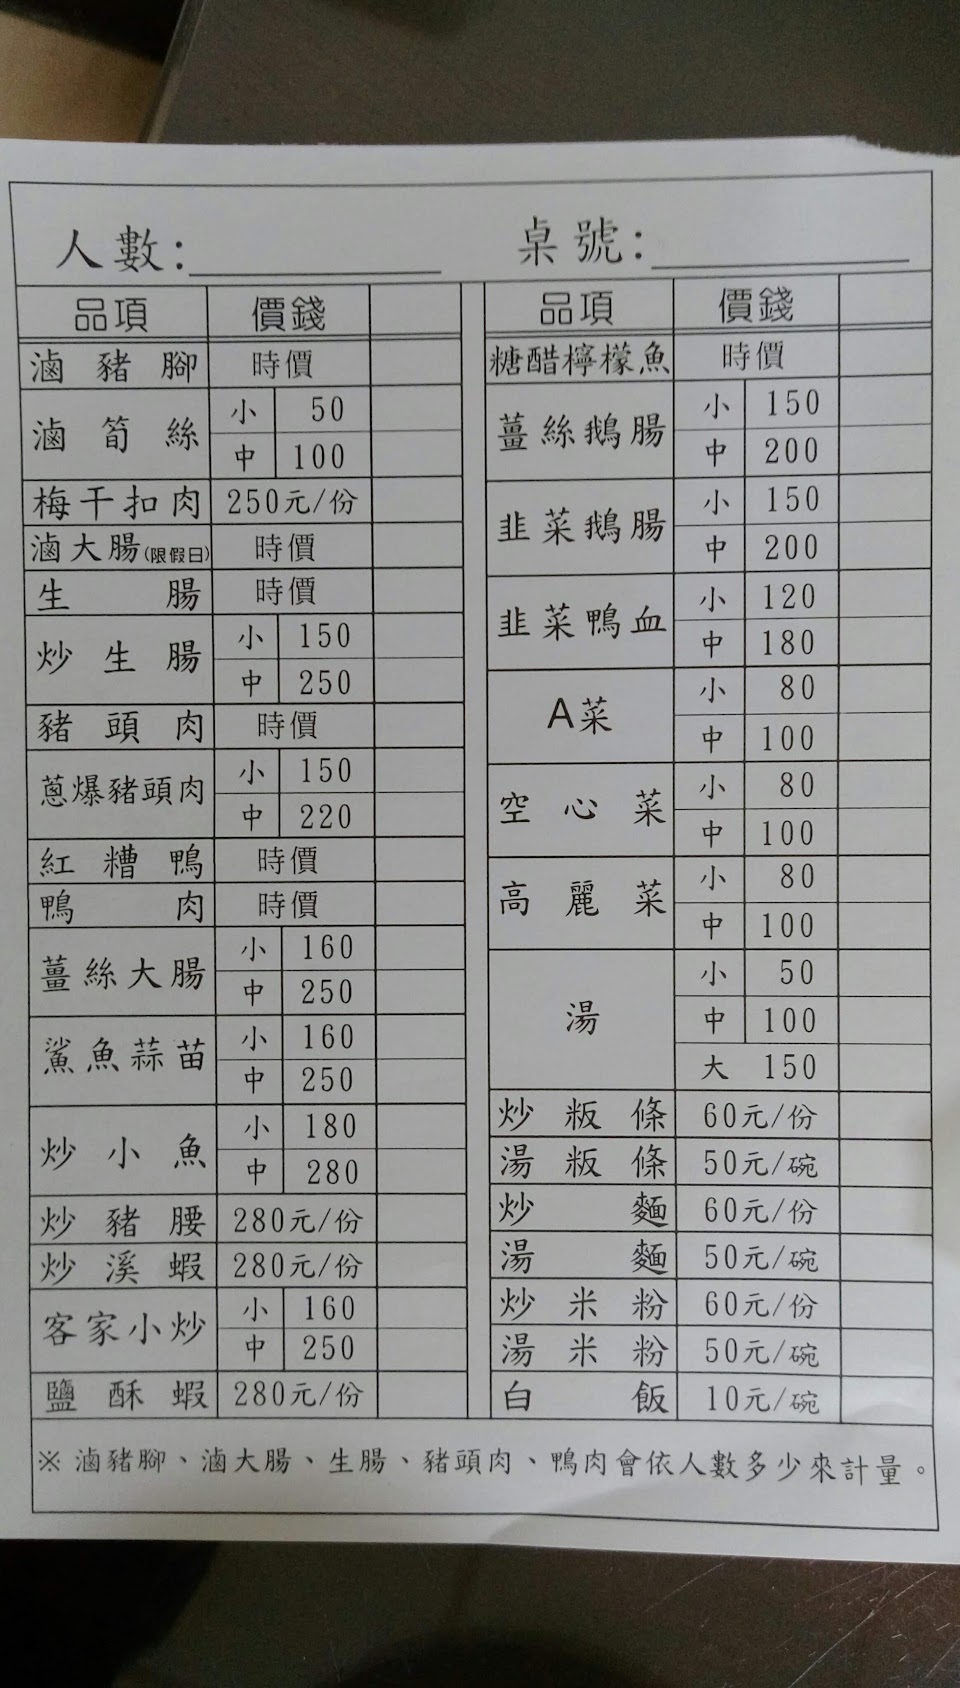 人數:
桌號:
品項 價錢
滷豬腳 時價
滷筍絲 小 50
中 100
梅干扣肉 250元/份
滷大腸(限假日) 時價
生腸 時價
炒生腸 小 150
中 250
豬頭肉 時價
蔥爆豬頭肉 小 150
中 220
紅糟鴨 時價
鴨肉 時價
薑絲大腸 小 160
中 250
鯊魚蒜苗 小 160
中 250
炒小魚 小 180
中 280
炒豬腰 280元/份
炒溪蝦 280元/份
客家小炒 小 160
中 250
鹽酥蝦 280元/份
品項 價錢
糖醋檸檬魚 時價
薑絲鵝腸 小 150
中 200
韭菜鵝腸 小 150
中 200
韭菜鴨血 小 120
中 180
A菜 小 80
中 100
空心菜 小 80
中 100
高麗菜 小 80
中 100
湯 小 50
中 100
大 150
炒粄條 60元/份
湯粄條 50元/碗
炒麵 60元/份
湯麵 50元/碗
炒米粉 60元/份
湯米粉 50元/碗
白飯 10元/碗
※滷豬腳、滷大腸、生腸、豬頭肉、鴨肉會依人數多少來計量。